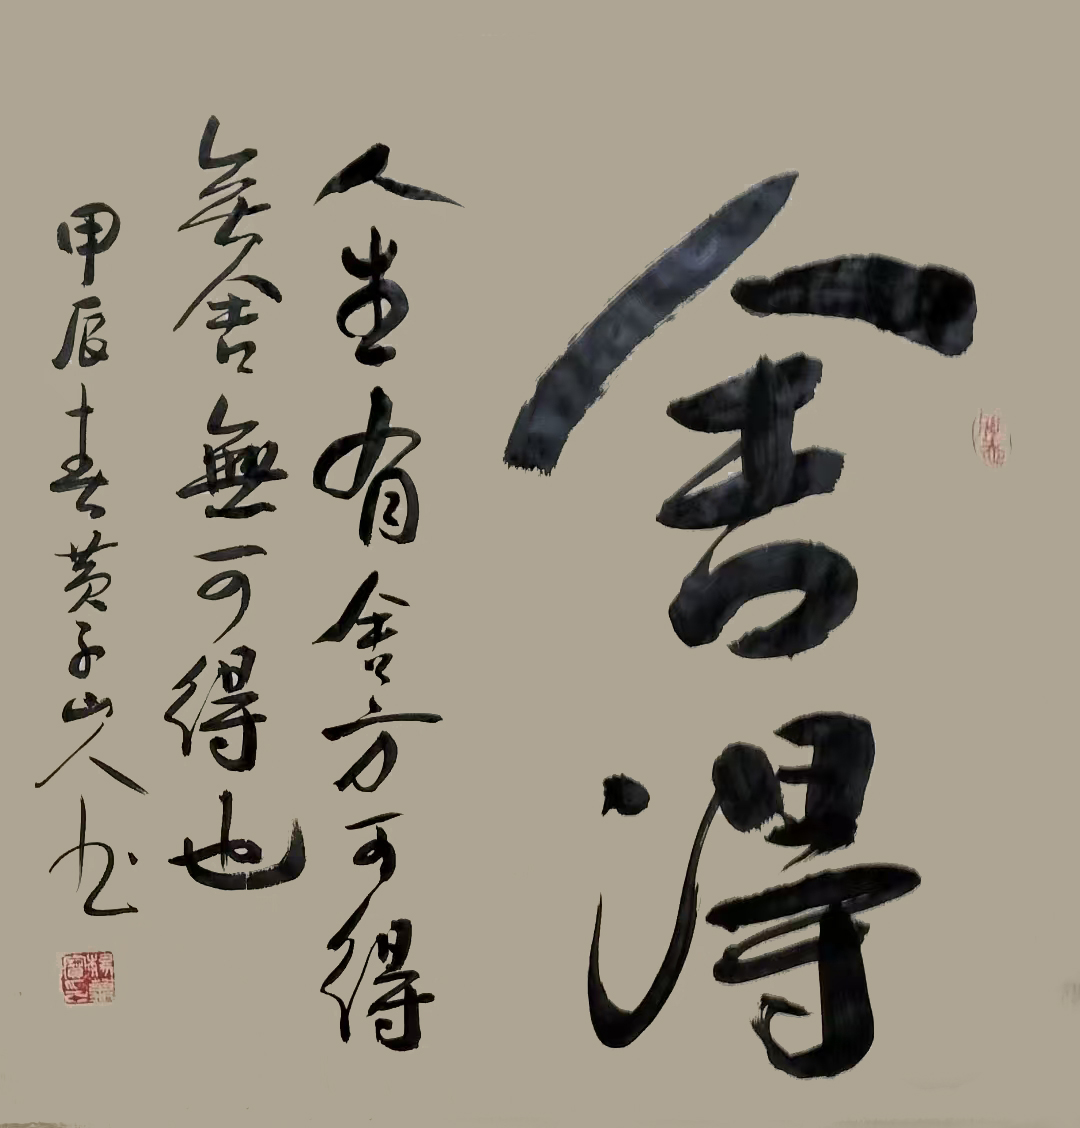 舍得
人生有舍方可得
無舍無可得也
甲辰春黄子山人书